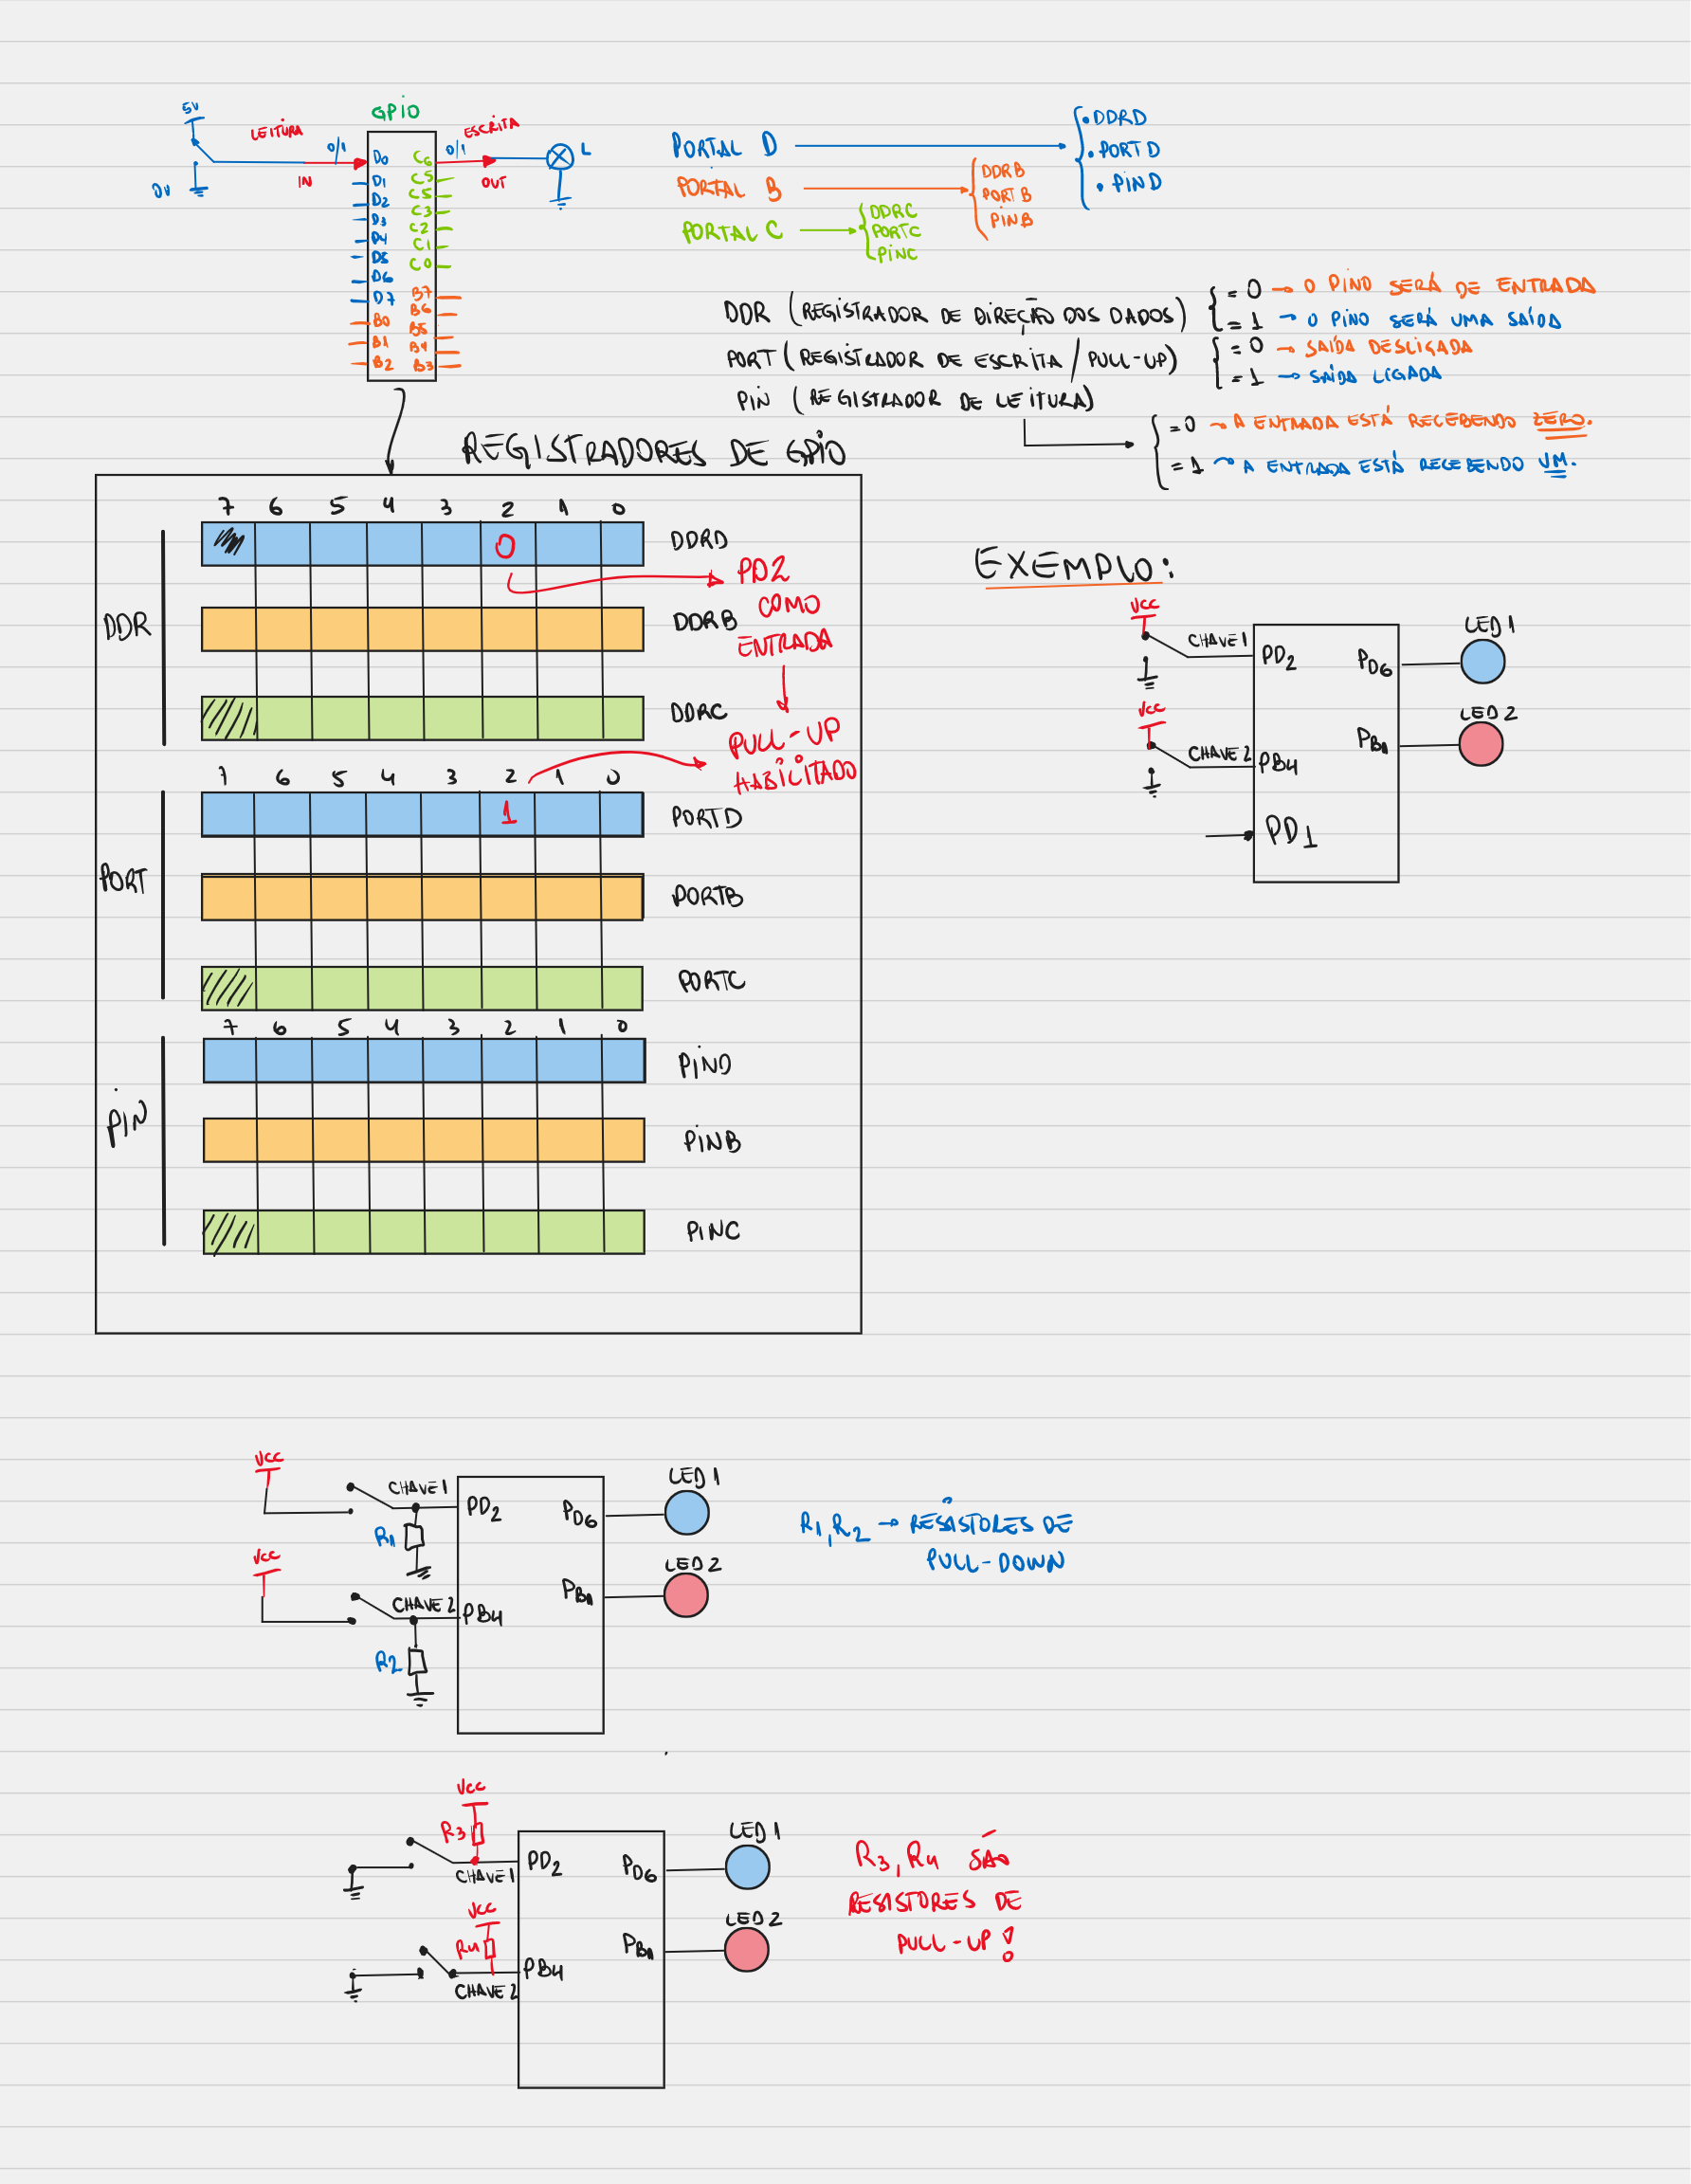 GPIO
5V
LEITURA
0/1
ESCRITA
0/1
L
0V
IN
OUT
D0
D1
D2
D3
D4
D5
D6
D7
B0
B1
B2
C6
C5
C5
C3
C2
C1
C0
B7
B6
B5
B4
B3
PORTAL D
• DDRD
• PORTD
• PIND
PORTAL B
DDRB
PORTB
PINB
PORTAL C
DDRC
PORTC
PINC
DDR (REGISTRADOR DE DIREÇÃO DOS DADOS)
= 0 → O PINO SERÁ DE ENTRADA
= 1 → O PINO SERÁ UMA SAÍDA
PORT (REGISTRADOR DE ESCRITA / PULL-UP)
= 0 → SAÍDA DESLIGADA
= 1 → SAÍDA LIGADA
PIN (REGISTRADOR DE LEITURA)
= 0 → A ENTRADA ESTÁ RECEBENDO ZERO.
= 1 → A ENTRADA ESTÁ RECEBENDO UM.
REGISTRADORES DE GPIO
7 6 5 4 3 2 1 0
DDR
0
DDRD
PD2
COMO
ENTRADA
DDRB
DDRC
PULL-UP
HABILITADO
7 6 5 4 3 2 1 0
PORT
1
PORTD
PORTB
PORTC
7 6 5 4 3 2 1 0
PIN
PIND
PINB
PINC
EXEMPLO:
VCC
CHAVE 1
PD2
PD6
LED 1
VCC
CHAVE 2
PB4
PB1
LED 2
PD1
VCC
CHAVE 1
PD2
PD6
LED 1
R1
VCC
CHAVE 2
PB4
PB1
LED 2
R2
R1, R2 → RESISTORES DE
PULL-DOWN
VCC
R3
CHAVE 1
PD2
PD6
LED 1
VCC
R4
CHAVE 2
PB4
PB1
LED 2
R3, R4 SÃO
RESISTORES DE
PULL-UP!